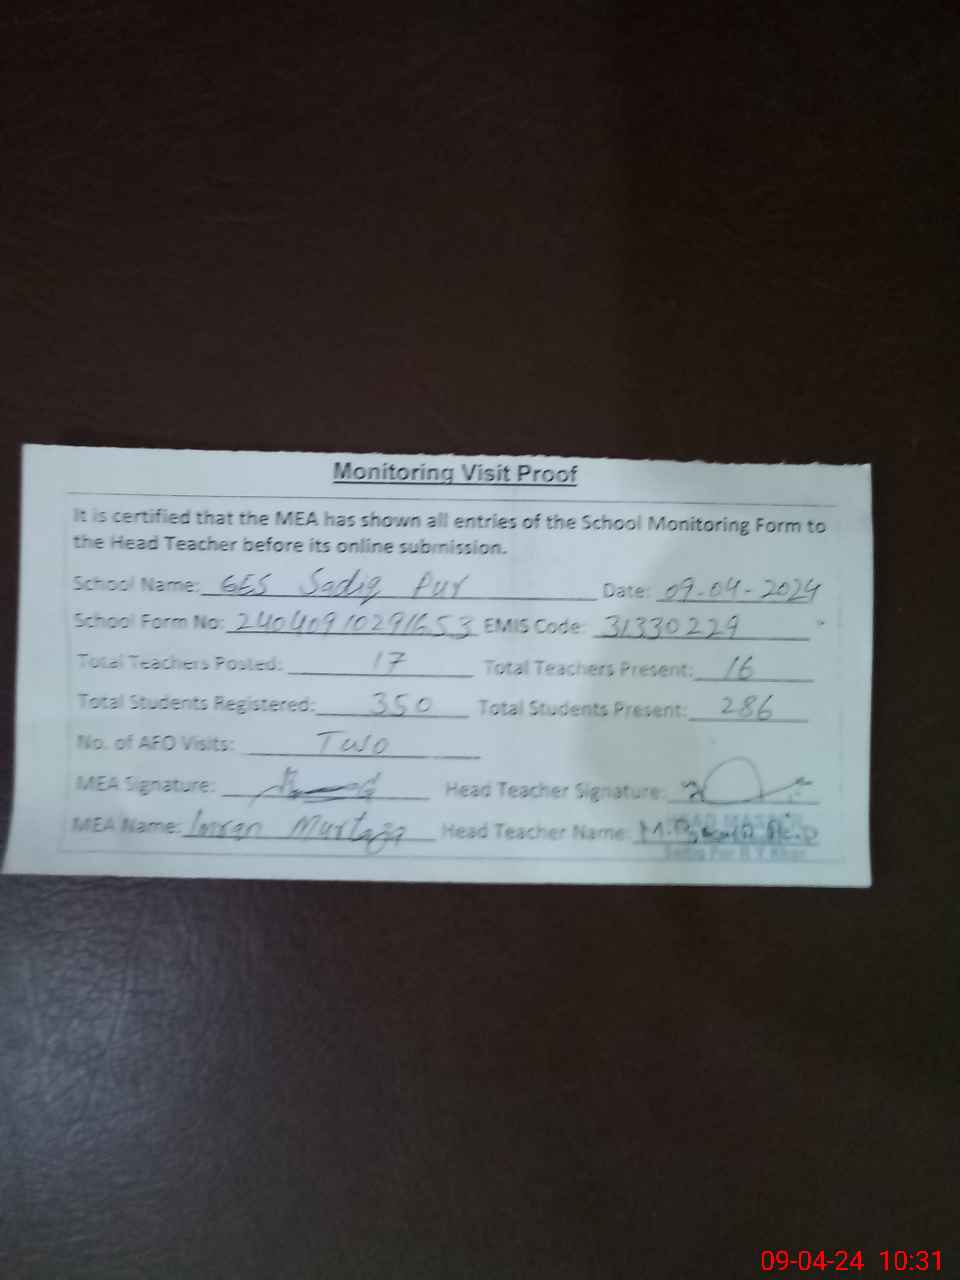 Monitoring Visit Proof
It is certified that the MEA has shown all entries of the School Monitoring Form to
the Head Teacher before its online submission.
School Name: GES Sadiq Pur Date: 09-04-2024
School Form No: 24040910291653 EMIS Code: 31330229
Total Teachers Posted: 17 Total Teachers Present: 16
Total Students Registered: 350 Total Students Present: 286
No. of AEO Visits: Two
MEA Signature: Head Teacher Signature:
MEA Name: Imran Murtaza Head Teacher Name:
HEAD MASTER
Sadiq Pur R.Y.Khan
09-04-24 10:31